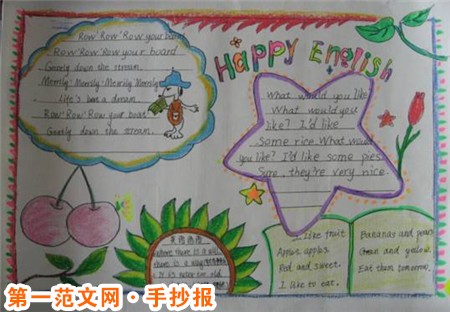 Row Row Row your board
Row Row Row your board
Gently down the stream.
Merrily Merrily Merrily Merrily
Life's but a dream.
Row Row Row your boat
Gently down the stream.
Happy English
What would you like
What would you
like? I'd like
Some rice. What would
you like? I'd like some pies
Sure, they're very nice
英语谚语
Where there is a will,
there is a way.
It is never too old
I like fruit
Apples
Red and sweet.
I like to eat.
Bananas and pears
Green and yellow.
Eat them tomorrow.
第一范文网·手抄报